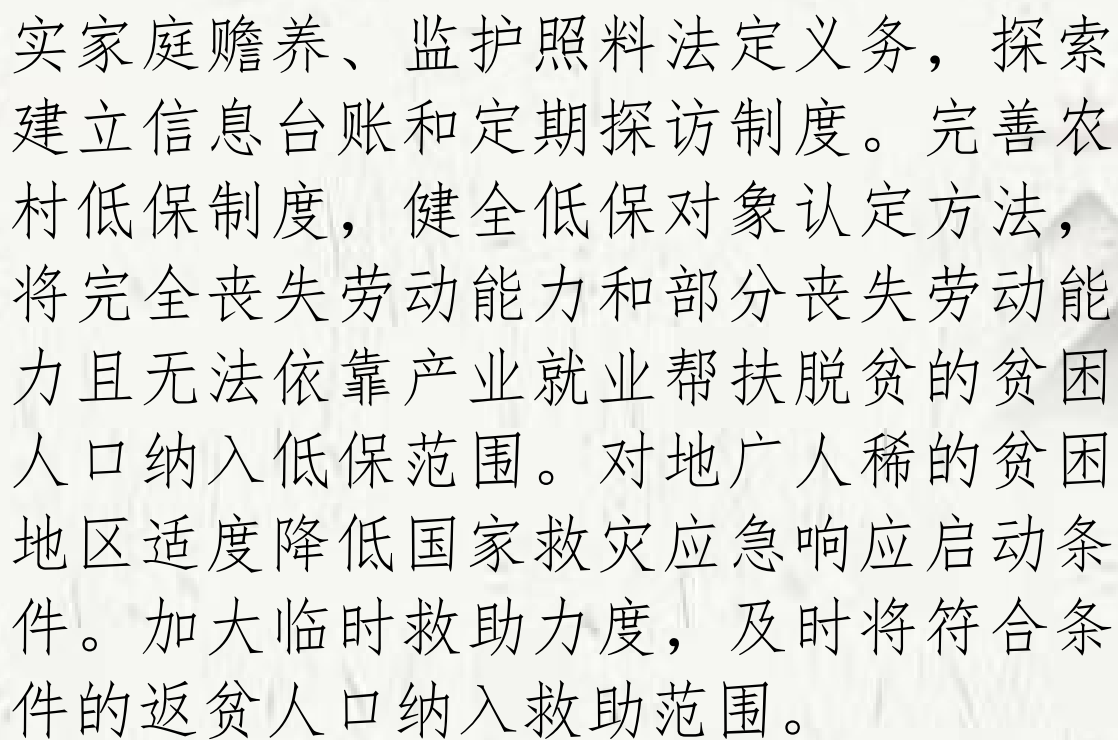 实家庭赡养、监护照料法定义务，探索
建立信息台账和定期探访制度。完善农
村低保制度，健全低保对象认定方法，
将完全丧失劳动能力和部分丧失劳动能
力且无法依靠产业就业帮扶脱贫的贫困
人口纳入低保范围。对地广人稀的贫困
地区适度降低国家救灾应急响应启动条
件。加大临时救助力度，及时将符合条
件的返贫人口纳入救助范围。